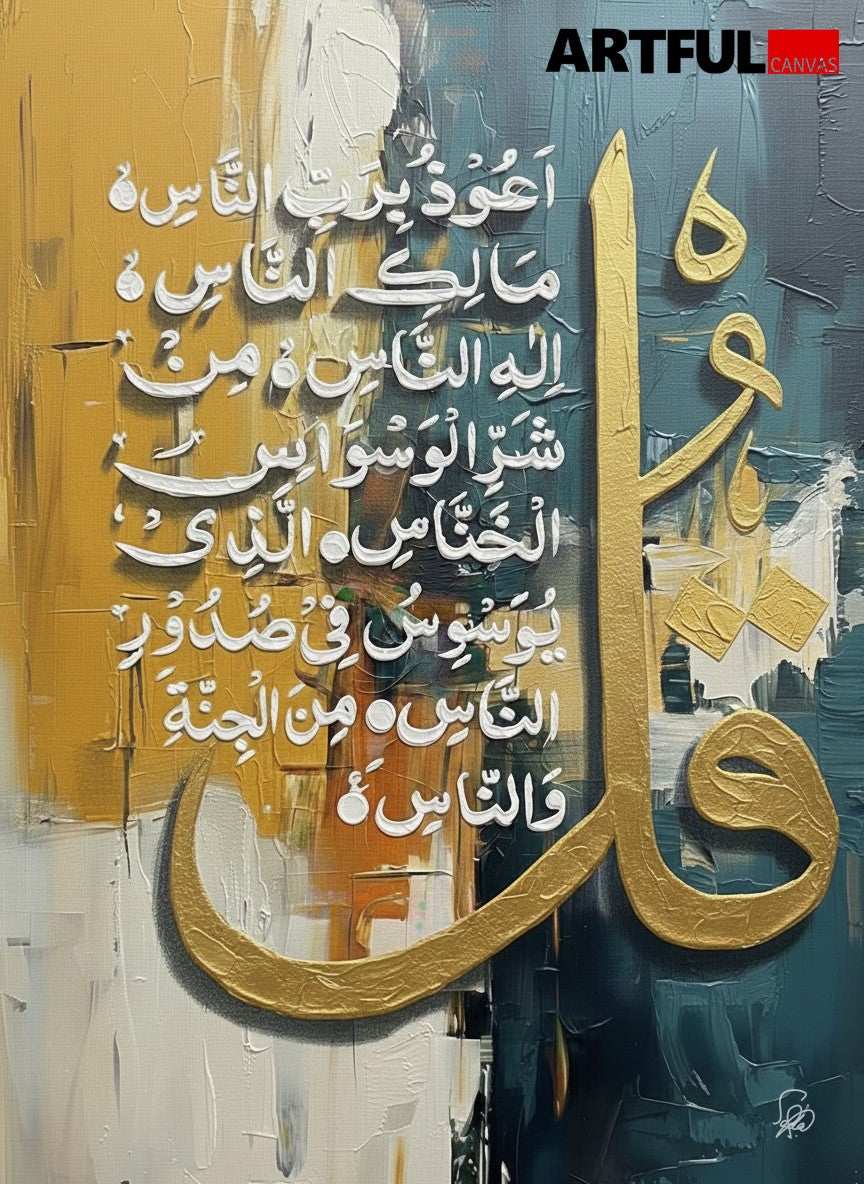 ARTFUL CANVAS
قُلْ
اَعُوْذُ بِرَبِّ النَّاسِ ه
مَالِكِ النَّاسِ ه
إِلٰهِ النَّاسِ ه مِنْ
شَرِّ الْوَسْوَاسِ
الْخَنَّاسِ ● الَّذِیْ
يُوَسْوِسُ فِیْ صُدُوْرِ
النَّاسِ ● مِنَ الْجِنَّةِ
وَالنَّاسِ ه